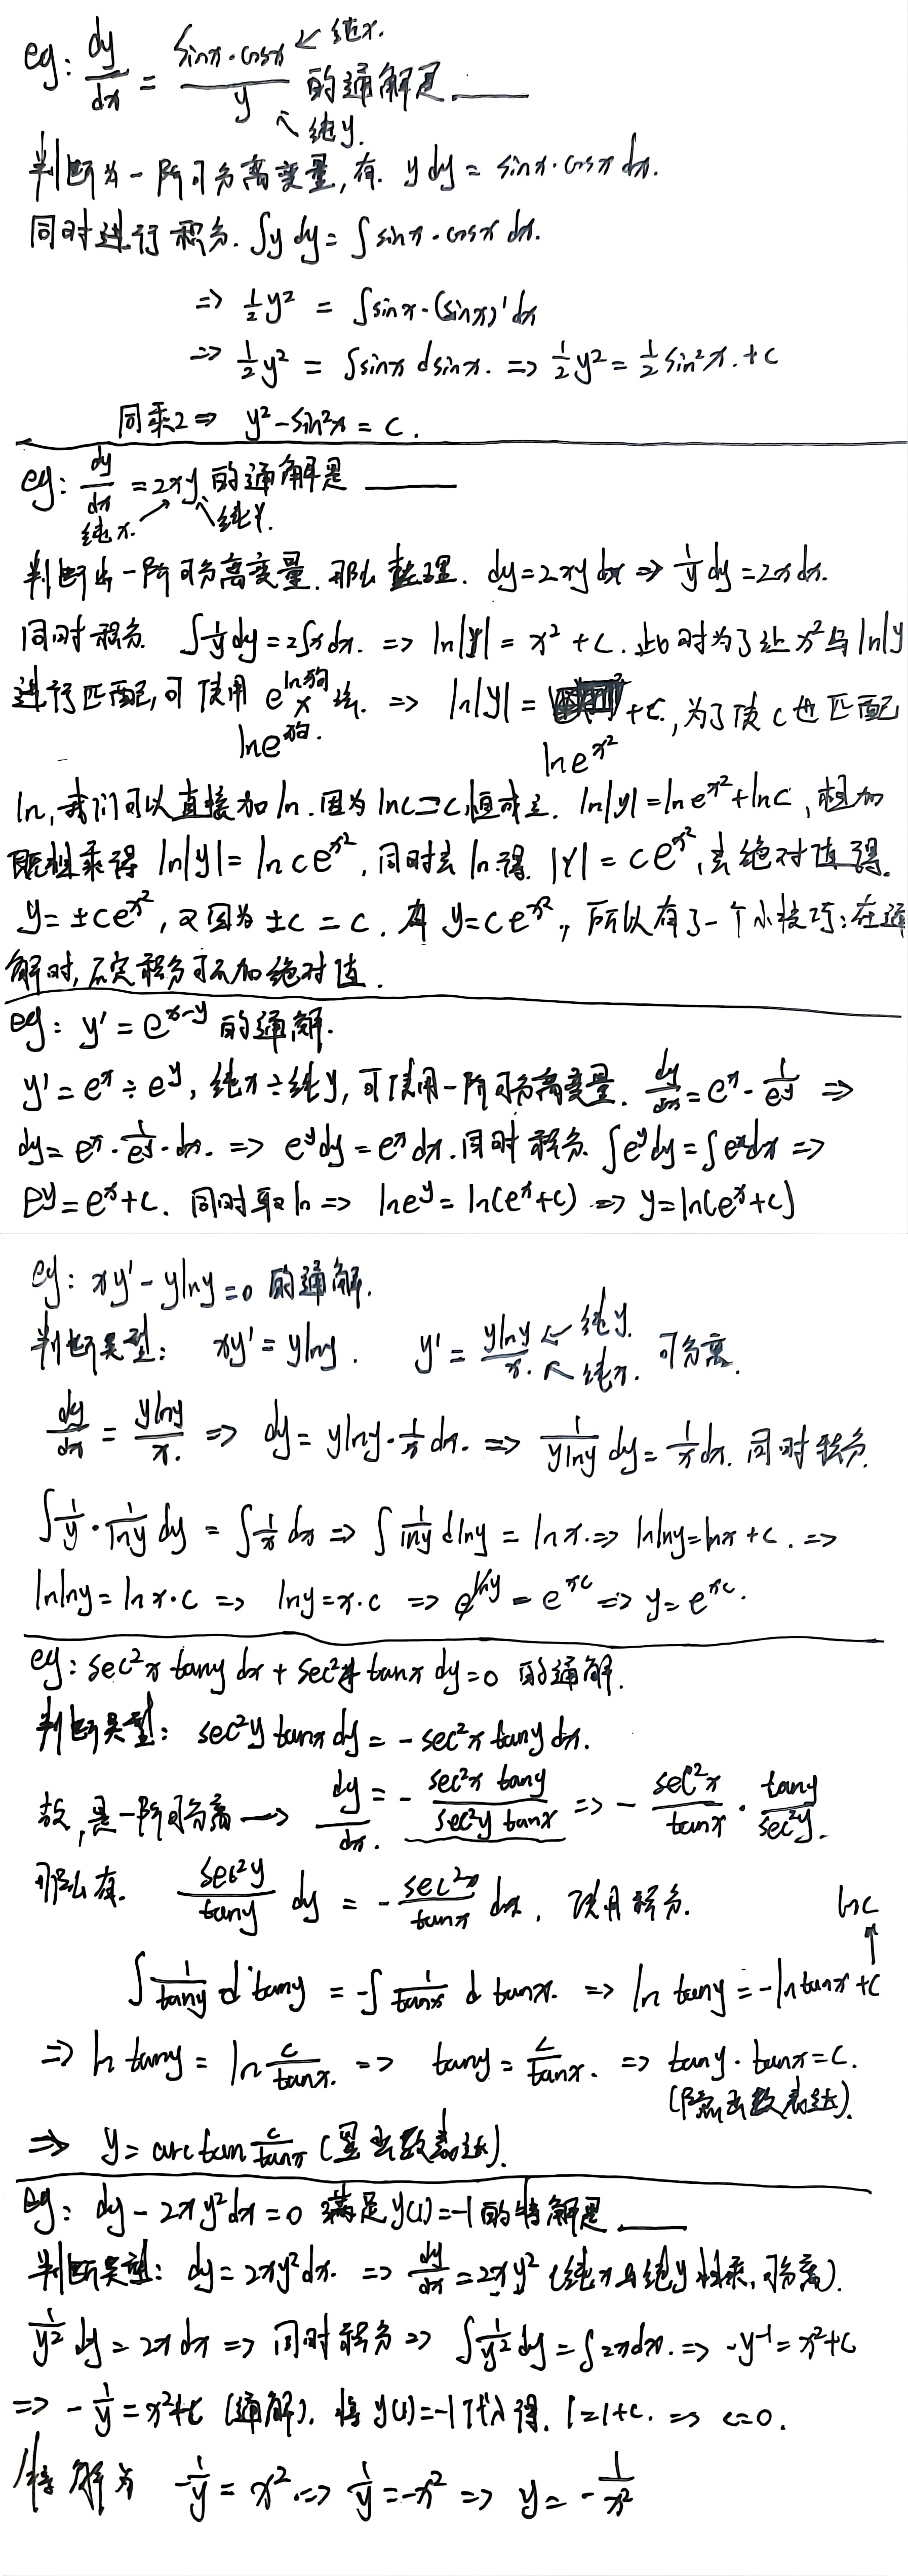 eg: dy/dx = sinx·cosx/y 的通解是 ____ ← 纯x. ↖ 纯y.
判断为一阶可分离变量, 有. y dy = sinx·cosx dx.
同时进行积分. ∫y dy = ∫sinx·cosx dx.
=> ½y² = ∫sinx·(sinx)'dx
=> ½y² = ∫sinx dsinx. => ½y² = ½sin²x.+c
同乘2 => y²-sin²x = c.
eg: dy/dx = 2xy 的通解是 ____
纯x. ↗ ↖纯y.
判断为一阶可分离变量. 那么整理. dy=2xy dx => 1/y dy = 2x dx.
同时积分 ∫1/y dy = 2∫x dx. => ln|y| = x² + c. 此时为了让 x² 与 ln|y|
进行匹配, 可使用 e^ln狗 法. => ln|y| = +c, 为了使 c 也匹配
lne^狗. lne^x²
ln, 我们可以直接加 ln. 因为 lnc=c 恒成立. ln|y| = lne^x²+lnc, 相加
既相乘得 ln|y| = ln ce^x², 同时去 ln 得 |y| = ce^x², 去绝对值得.
y = ±ce^x², 又因为 ±c = c. 有 y=ce^x², 所以有了一个小技巧: 在通
解时, 不定积分可不加绝对值.
eg: y' = e^(x-y) 的通解.
y' = e^x ÷ e^y, 纯x÷纯y, 可使用一阶可分离变量. dy/dx = e^x · 1/e^y =>
dy = e^x · 1/e^y · dx. => e^y dy = e^x dx. 同时积分. ∫e^y dy = ∫e^x dx =>
e^y = e^x+c. 同时取 ln => lne^y = ln(e^x+c) => y=ln(e^x+c)
eg: xy' - ylny = 0 的通解.
判断类型: xy' = ylny. y' = ylny/x. ← 纯y. ↖ 纯x. 可分离.
dy/dx = ylny/x. => dy = ylny·1/x dx. => 1/(ylny) dy = 1/x dx. 同时积分.
∫1/y · 1/lny dy = ∫1/x dx => ∫1/lny dlny = lnx. => lnlny=lnx+c. =>
lnlny = lnx·c => lny=x·c => e^lny = e^xc => y=e^xc.
eg: sec²x tany dx + sec²y tanx dy=0 的通解.
判断类型: sec²y tanx dy = -sec²x tany dx.
故, 是一阶可分离 —> dy/dx. = - sec²x tany/sec²y tanx => - sec²x/tanx · tany/sec²y.
那么有. sec²y/tany dy = - sec²x/tanx dx, 使用积分.
lnc
↑
∫1/tany d tany = -∫1/tanx d tanx. => ln tany = -ln tanx +c
=> ln tany = ln c/tanx. => tany = c/tanx. => tany·tanx=c.
(隐函数表达).
=> y = arctan c/tanx (显函数表达).
eg: dy - 2xy²dx = 0 满足 y(1)=-1 的特解是 ____
判断类型: dy = 2xy²dx. => dy/dx = 2xy² (纯x与纯y相乘, 可分离).
1/y² dy = 2x dx => 同时积分 => ∫1/y² dy = ∫2x dx. => -y⁻¹ = x²+c
=> -1/y = x²+c (通解). 将 y(1)=-1 代入得. 1=1+c. => c=0.
特解为 -1/y = x² => 1/y = -x² => y = -1/x²